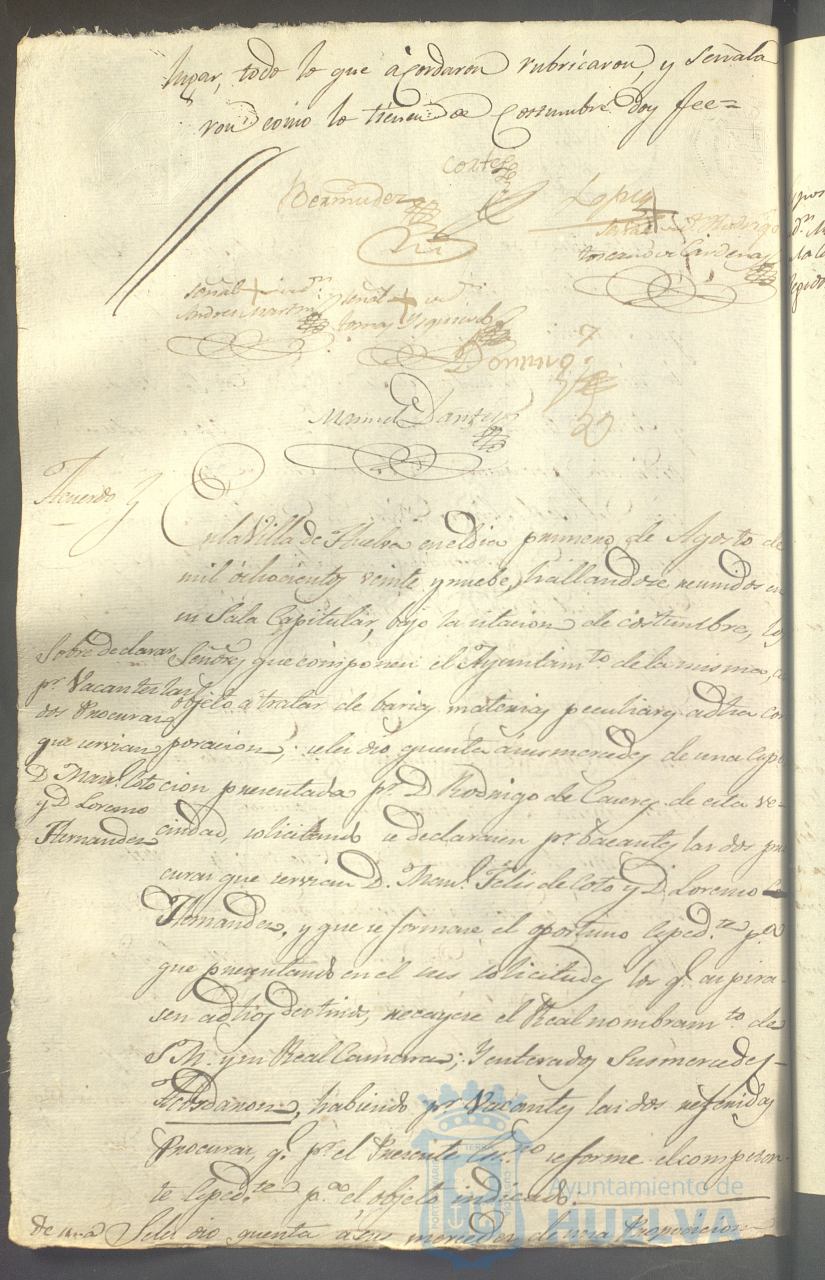 lugar, todo lo que acordaron rubricaron, y señala
ron como lo tienen de Costumbre doy fee=
Bermudez
Cortes
Lopez
Señal + de Rodrigo
toscano de Cardenas
señal + de
Andres Martin
y señal + de
Tomas Izquierdo
Domingo
Manuel Dantes
Acuerdo
En la Villa de Huelva en el dia primero de Agosto de
mil ochocientos veinte y nuebe, hallandose reunidos en
su Sala Capitular, bajo la citacion de costumbre, los
Señores que componen el Ayuntamto de la misma,
objeto a tratar de barias materias peculiares a dha cor
poracion; se les dio quenta a sus mercedes de una espo
cion presentada pr D Rodrigo de Caceres de esta ve-
cindad, solicitando se declarasen pr Vacantes las dos pro
curas que servian D. Manl. Felis de Coto y D. Lorenzo
Hernandez, y que se formase el oportuno Espedte pa
que presentando en él sus solicitudes los qe. aspira-
sen a dhos destinos, recayese el Real nombramto de
S. M. y su Real Camara; Y enterados Sus mercedes-
Acordaron, habiendo pr Vacantes las dos referidas
Procuras, qe. pr el Presente Essno se forme el competen-
te Espedte pa el objeto indicado.
Sobre declarar
pr. Vacantes las
dos Procuras
que servian
D. Manl. Coto
y D. Lorenzo
Hernandez
de una Se les dio quenta a sus mercedes de una Proposicion
Ayuntamiento de
HUELVA